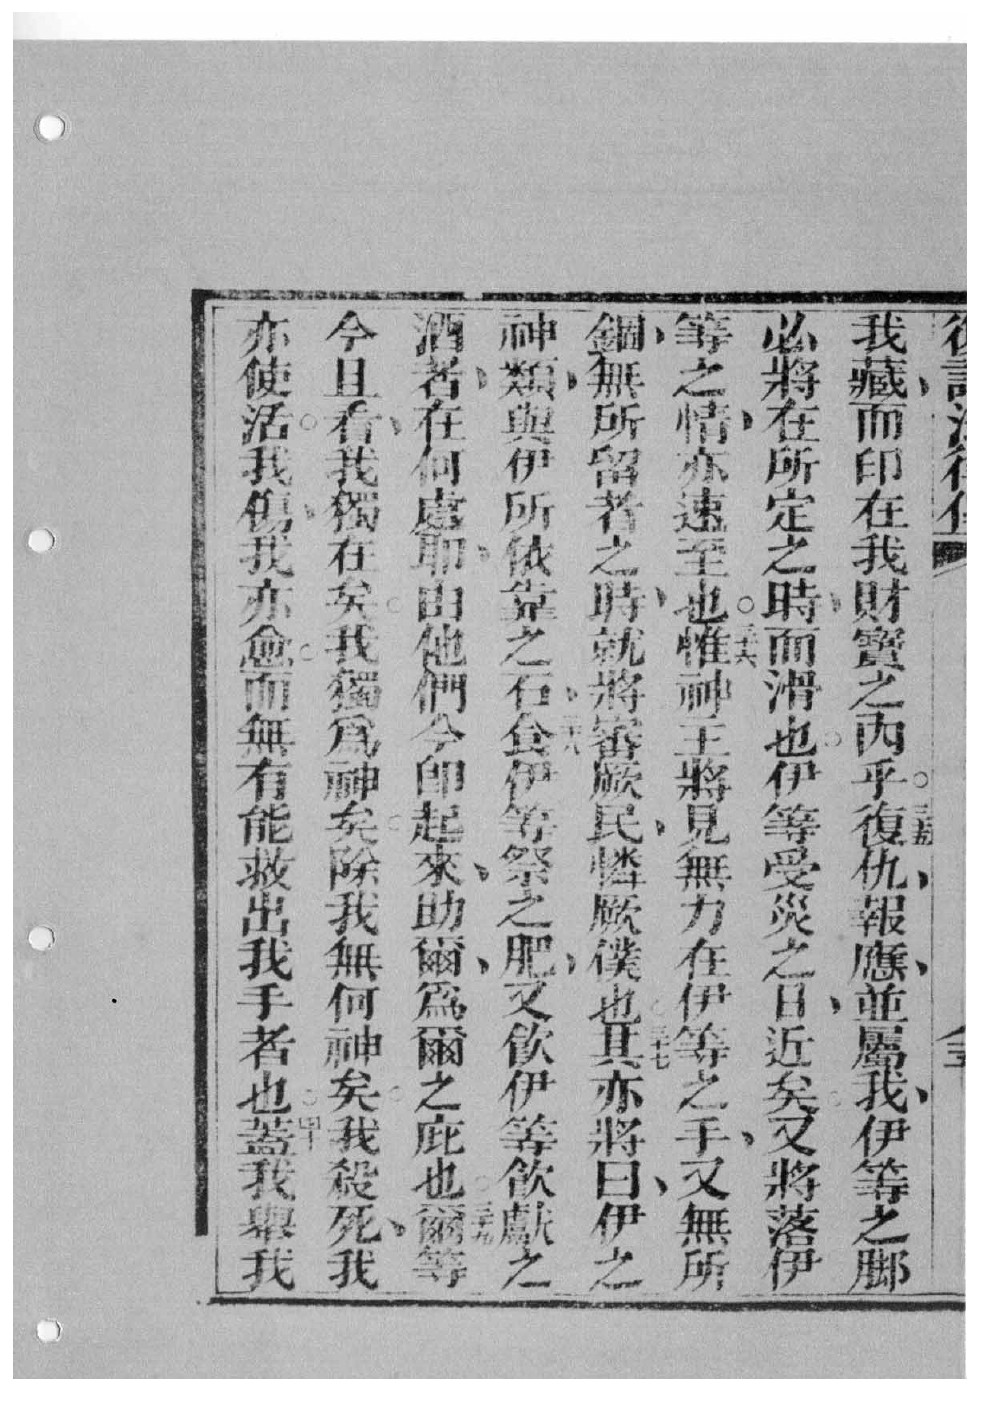 我藏、而印在我財寶之內乎。三十五復仇、報應、並屬我、伊等之脚
必將在所定之時、而滑也。伊等受災之日、近矣。又將落伊
等之情、亦速至也。三十六惟神主將見無力在伊等之手、又無所
錮、無所留者之時、就將審厥民、憐厥僕也。三十七其亦將曰、伊之
神類、與伊所依靠之石、三十八食伊等祭之肥、又飲伊等飲獻之
酒者、在何處耶、由他們今即起來、助爾、為爾之庇也。三十九爾等
今且看、我獨在矣。我獨為神矣。除我無何神矣。我殺死、我
亦使活。我傷、我亦愈。而無有能救出我手者也。四十蓋我舉我